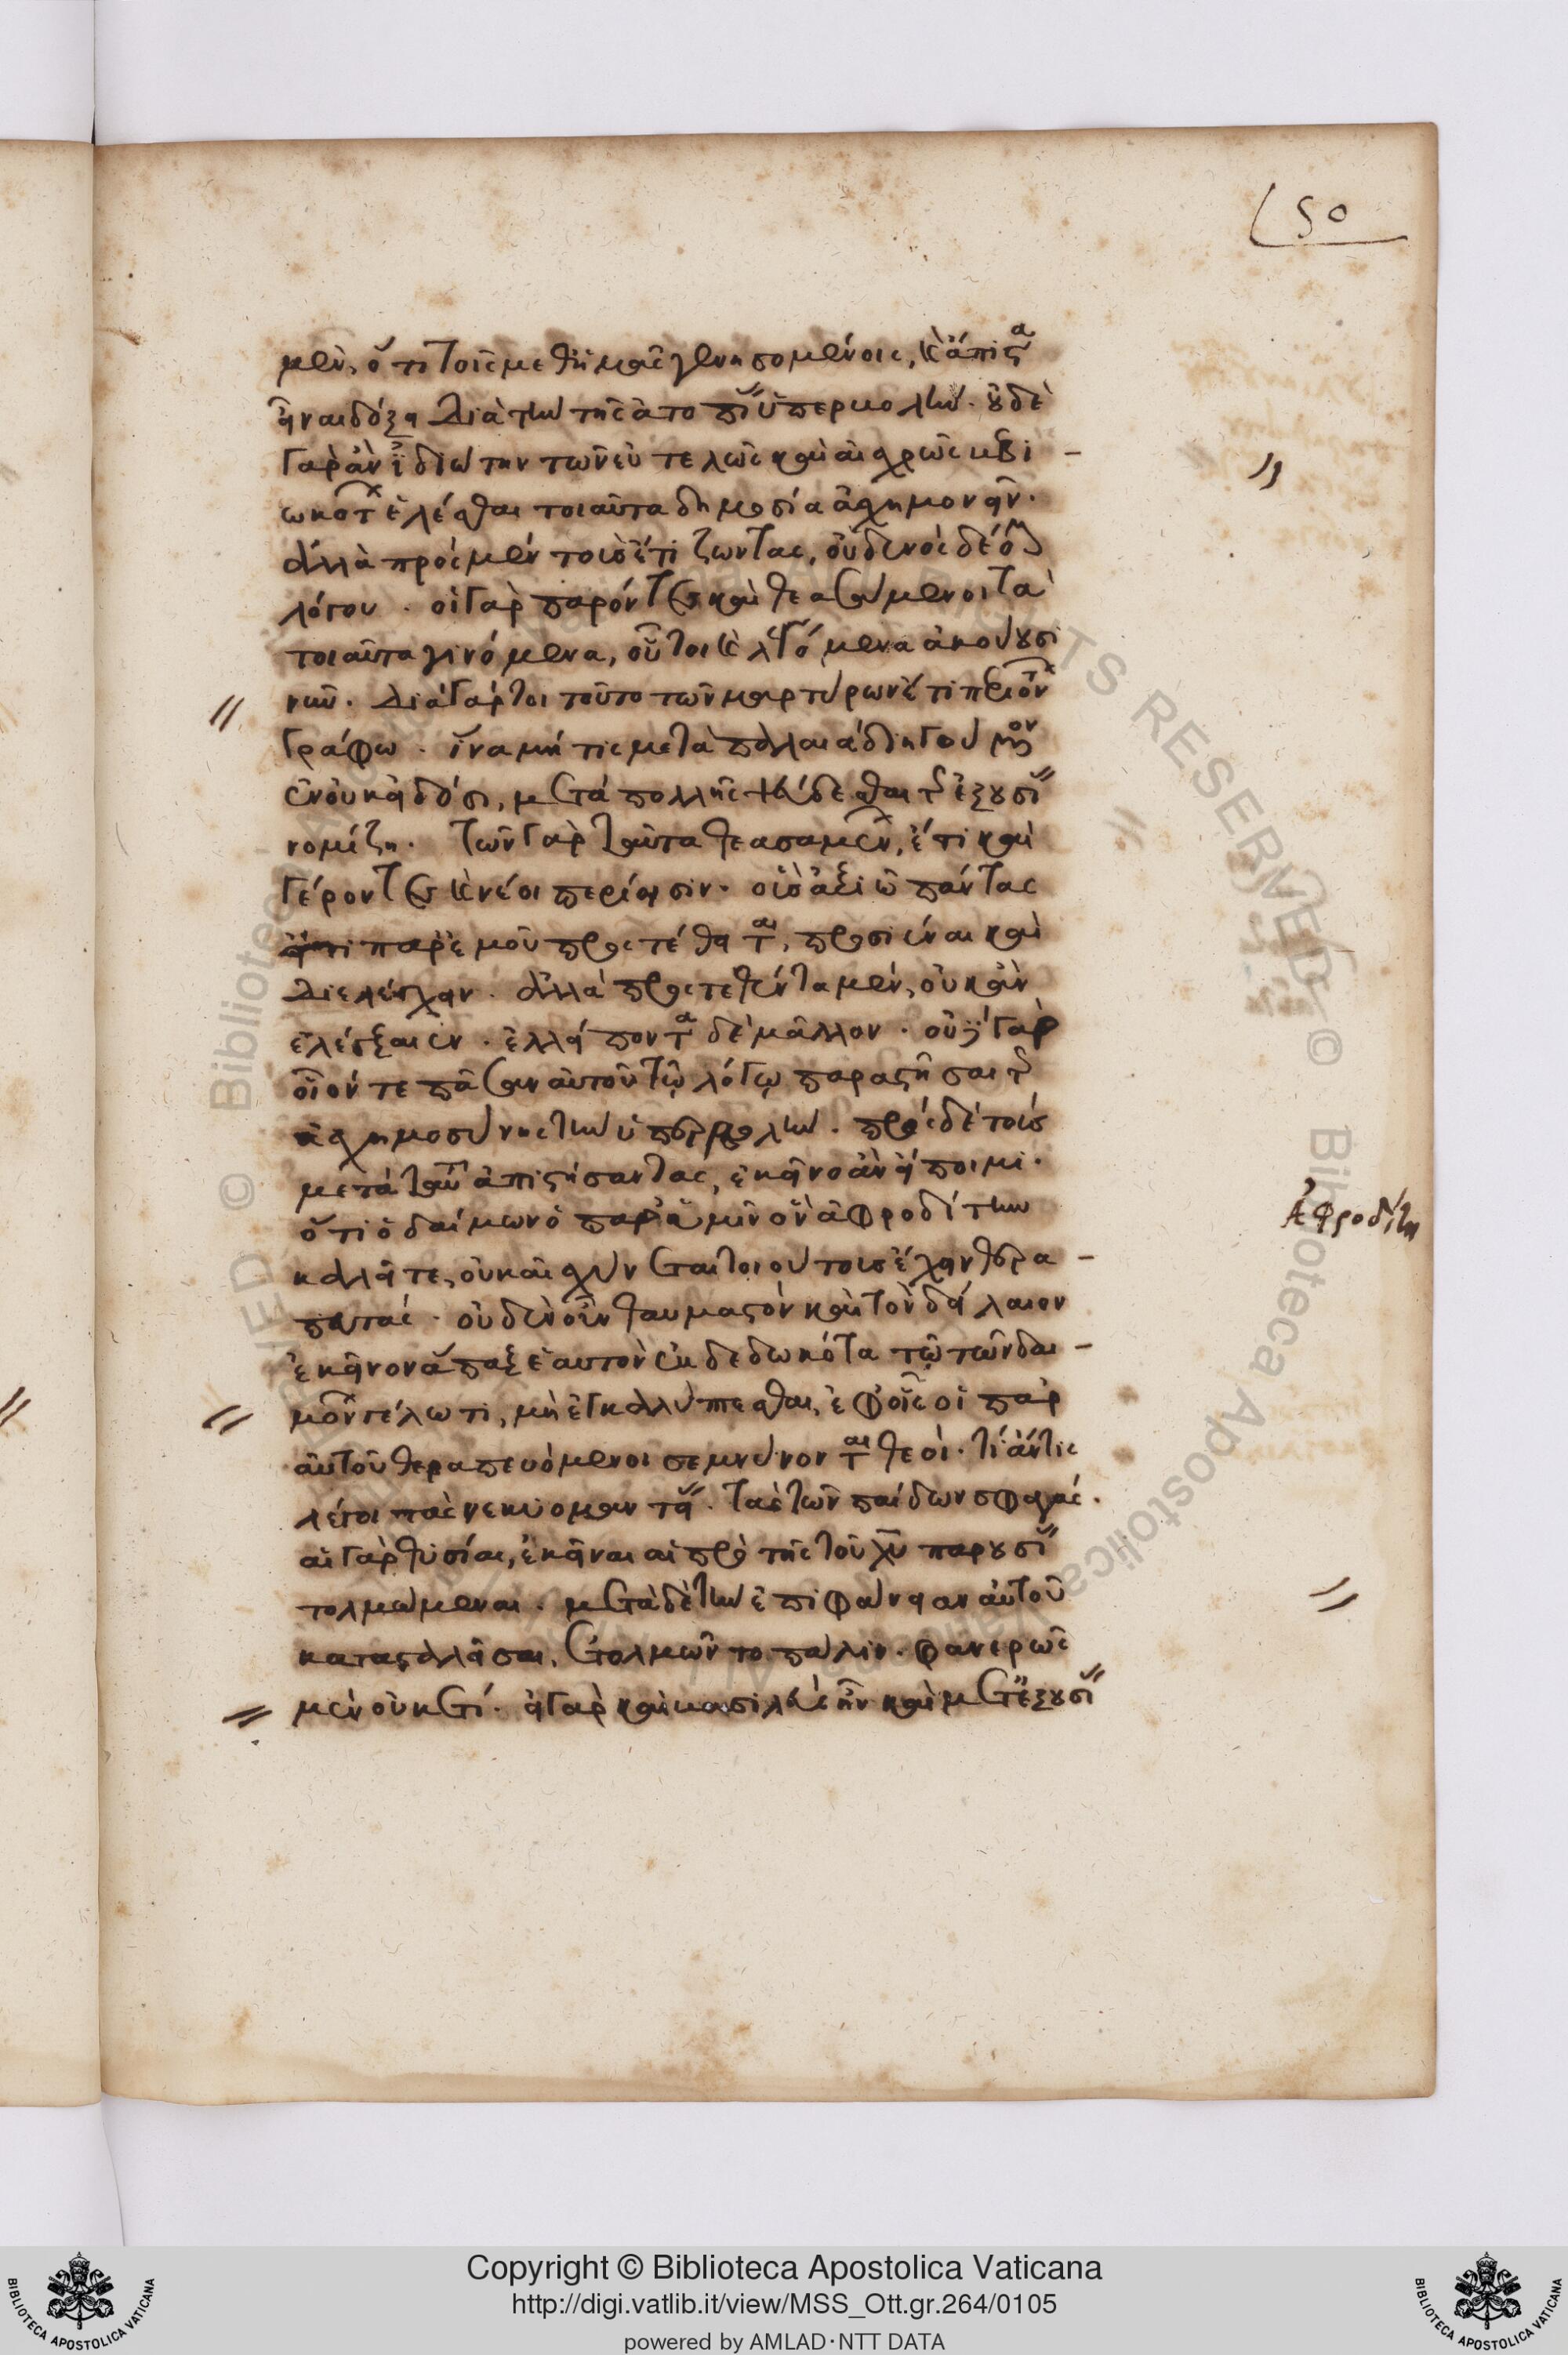 50
μὲν, ὅτι τοῖς μεθ' ἡμᾶς γενησομένοις, καὶ ἄπιστα
εἶναι δόξει διὰ τὴν τῆς ἀτοπίας ὑπερβολήν. οὐδὲ
γὰρ ἂν ἰδιώτην τῶν εὐτελῶς καὶ αἰσχρῶς βεβι-
ωκότων ἑλέσθαι τοιαῦτα δημοσία ἀσχημονεῖν.
ἀλλὰ πρὸς μὲν τοὺς ἔτι ζῶντας, οὐδενὸς δέομαι
λόγου. οἱ γὰρ παρόντες καὶ θεασάμενοι τὰ
τοιαῦτα γινόμενα, οὗτοι καὶ λεγόμενα ἀκούουσι
νῦν. διὰ γάρ τοι τοῦτο τῶν μαρτύρων ἔτι περιόντων
γράφω. ἵνα μή τις με τὰ παλαιὰ διηγούμενον
ἐν οὐκ εἰδόσι, μετὰ πολλῆς ψεύδεσθαι τῆς ἐξουσίας
νομίζη. τῶν γὰρ ταῦτα θεασαμένων, ἔτι καὶ
γέροντες καὶ νέοι περίεισιν. οὓς ἀξιῶ πάντας
εἴ τι παρ' ἐμοῦ προστέθειται, προσιέναι καὶ
διελέγχειν. ἀλλὰ προστεθέντα μὲν, οὐκ ἂν
ἐλέγξαιεν. ἐλλείποντα δὲ μᾶλλον. οὐ γὰρ
οἷόν τε πᾶσαν αὐτοῦ τῷ λόγῳ παραστῆσαι τῆς
ἀσχημοσύνης τὴν ὑπερβολήν. πρὸς δὲ τοὺς
μετὰ ταῦτα ἀπιστήσαντας, ἐκεῖνο ἂν εἴποιμι.
ὅτι ὁ δαίμων ὁ παρ' ὑμῖν ὃν ἀφροδίτην
καλεῖτε, οὐκ αἰσχύνεται τοιούτους ἔχειν θερα-
πευτάς. οὐδὲν οὖν θαυμαστὸν καὶ τὸν δείλαιον
ἐκεῖνον ἅπαξ ἑαυτὸν ἐκδεδωκότα τῷ τῶν δαι-
μόνων γέλωτι, μὴ ἐγκαλύπτεσθαι, ἐφ' οἷς οἱ παρ'
αὐτοῦ θεραπευόμενοι σεμνύνονται θεοί. τί ἄν τις
λέγοι τὰς νεκυομαντείας. τὰς τῶν παίδων σφαγάς.
αἱ γὰρ θυσίαι, ἐκεῖναι αἱ πρὸ τῆς τοῦ χυ παρουσίας
τολμώμεναι. μετὰ δὲ τὴν ἐπιφάνειαν αὐτοῦ
κατασταλεῖσαι, ἐτολμῶντο πάλιν. φανερῶς
μὲν οὐκέτι. εἰ γὰρ καὶ βασιλεὺς ἦν καὶ μετ' ἐξουσίας
Ἀφροδίτη